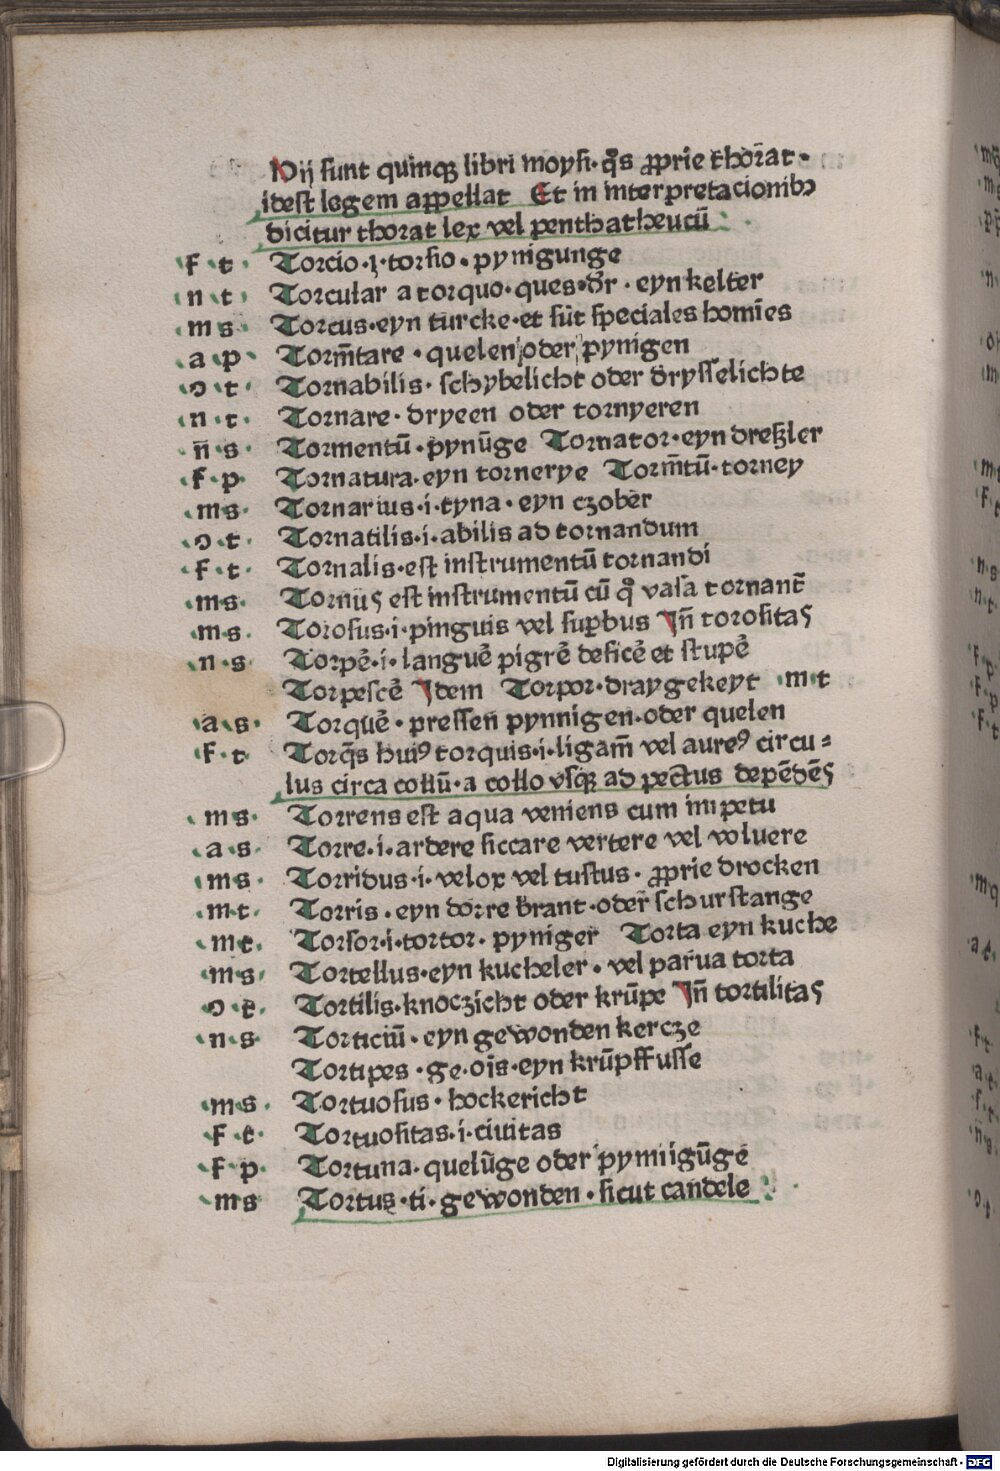 Hij sunt quinqꝫ libri moysi · qͦs ꝓprie thorat ·
idest legem appellat Et in interpretacionibꝰ
dicitur thorat lex vel penthatheucū
f · t · Torcio · ꝫ · torsio · pynigunge
n · t · Torcular a torquo · ques · dr̄ · eyn kelter
m s · Torcus · eyn turcke · et sūt speciales homīes
a · p · Torm̄tare · quelen oder pynigen
ɔ · t · Tornabilis · schybelicht oder drysselichte
n · t · Tornare · dryeen oder tornyeren
n̄ · s · Tormentū · pynūge Tornator · eyn dreßler
f · p · Tornatura · eyn tornerye Torm̄tū · torney
m s · Tornarius · i · tyna · eyn czober
ɔ · t · Tornatilis · i · abilis ad tornandum
f · t · Tornalis · est instrumentū tornandi
m s · Tornus est instrumentū cū qͦ vasa tornant̄
m s · Torosus · i · pinguis vel supbus Jn̄ torositas
n · s Torpē · i · languē pigrē deficē et stupē
Torpescē Jdem Torpor · draygekeyt · m · t
a · s · Torquē · pressen pynnigen · oder quelen
f · t · Torqs̄ huiꝰ torquis · i · ligam̄ vel aureꝰ circu=
lus circa collū · a collo vsqꝫ ad pectus depēdēs
m s · Torrens est aqua veniens cum impetu
a · s · Torre · i · ardere siccare vertere vel voluere
m s · Torridus · i · velox vel tustus · ꝓprie drocken
m · t · Torris · eyn dorre brant · oder schurstange
m t · Torsor · i · tortor · pyniger Torta eyn kuche
m s · Tortellus · eyn kucheler · vel parua torta
ɔ · t · Tortilis · knoczicht oder krūpe Jn̄ tortilitas
n · s · Torticiū · eyn gewonden kercze
Tortipes · ge · oīs · eyn krūpffusse
m s · Tortuosus · hockericht
f t · Tortuositas · i · ciuitas
f · p · Tortuna · quelūge oder pyniigūge
m s Tortus · ti · gewonden · sicut candele
Digitalisierung gefördert durch die Deutsche Forschungsgemeinschaft - DFG